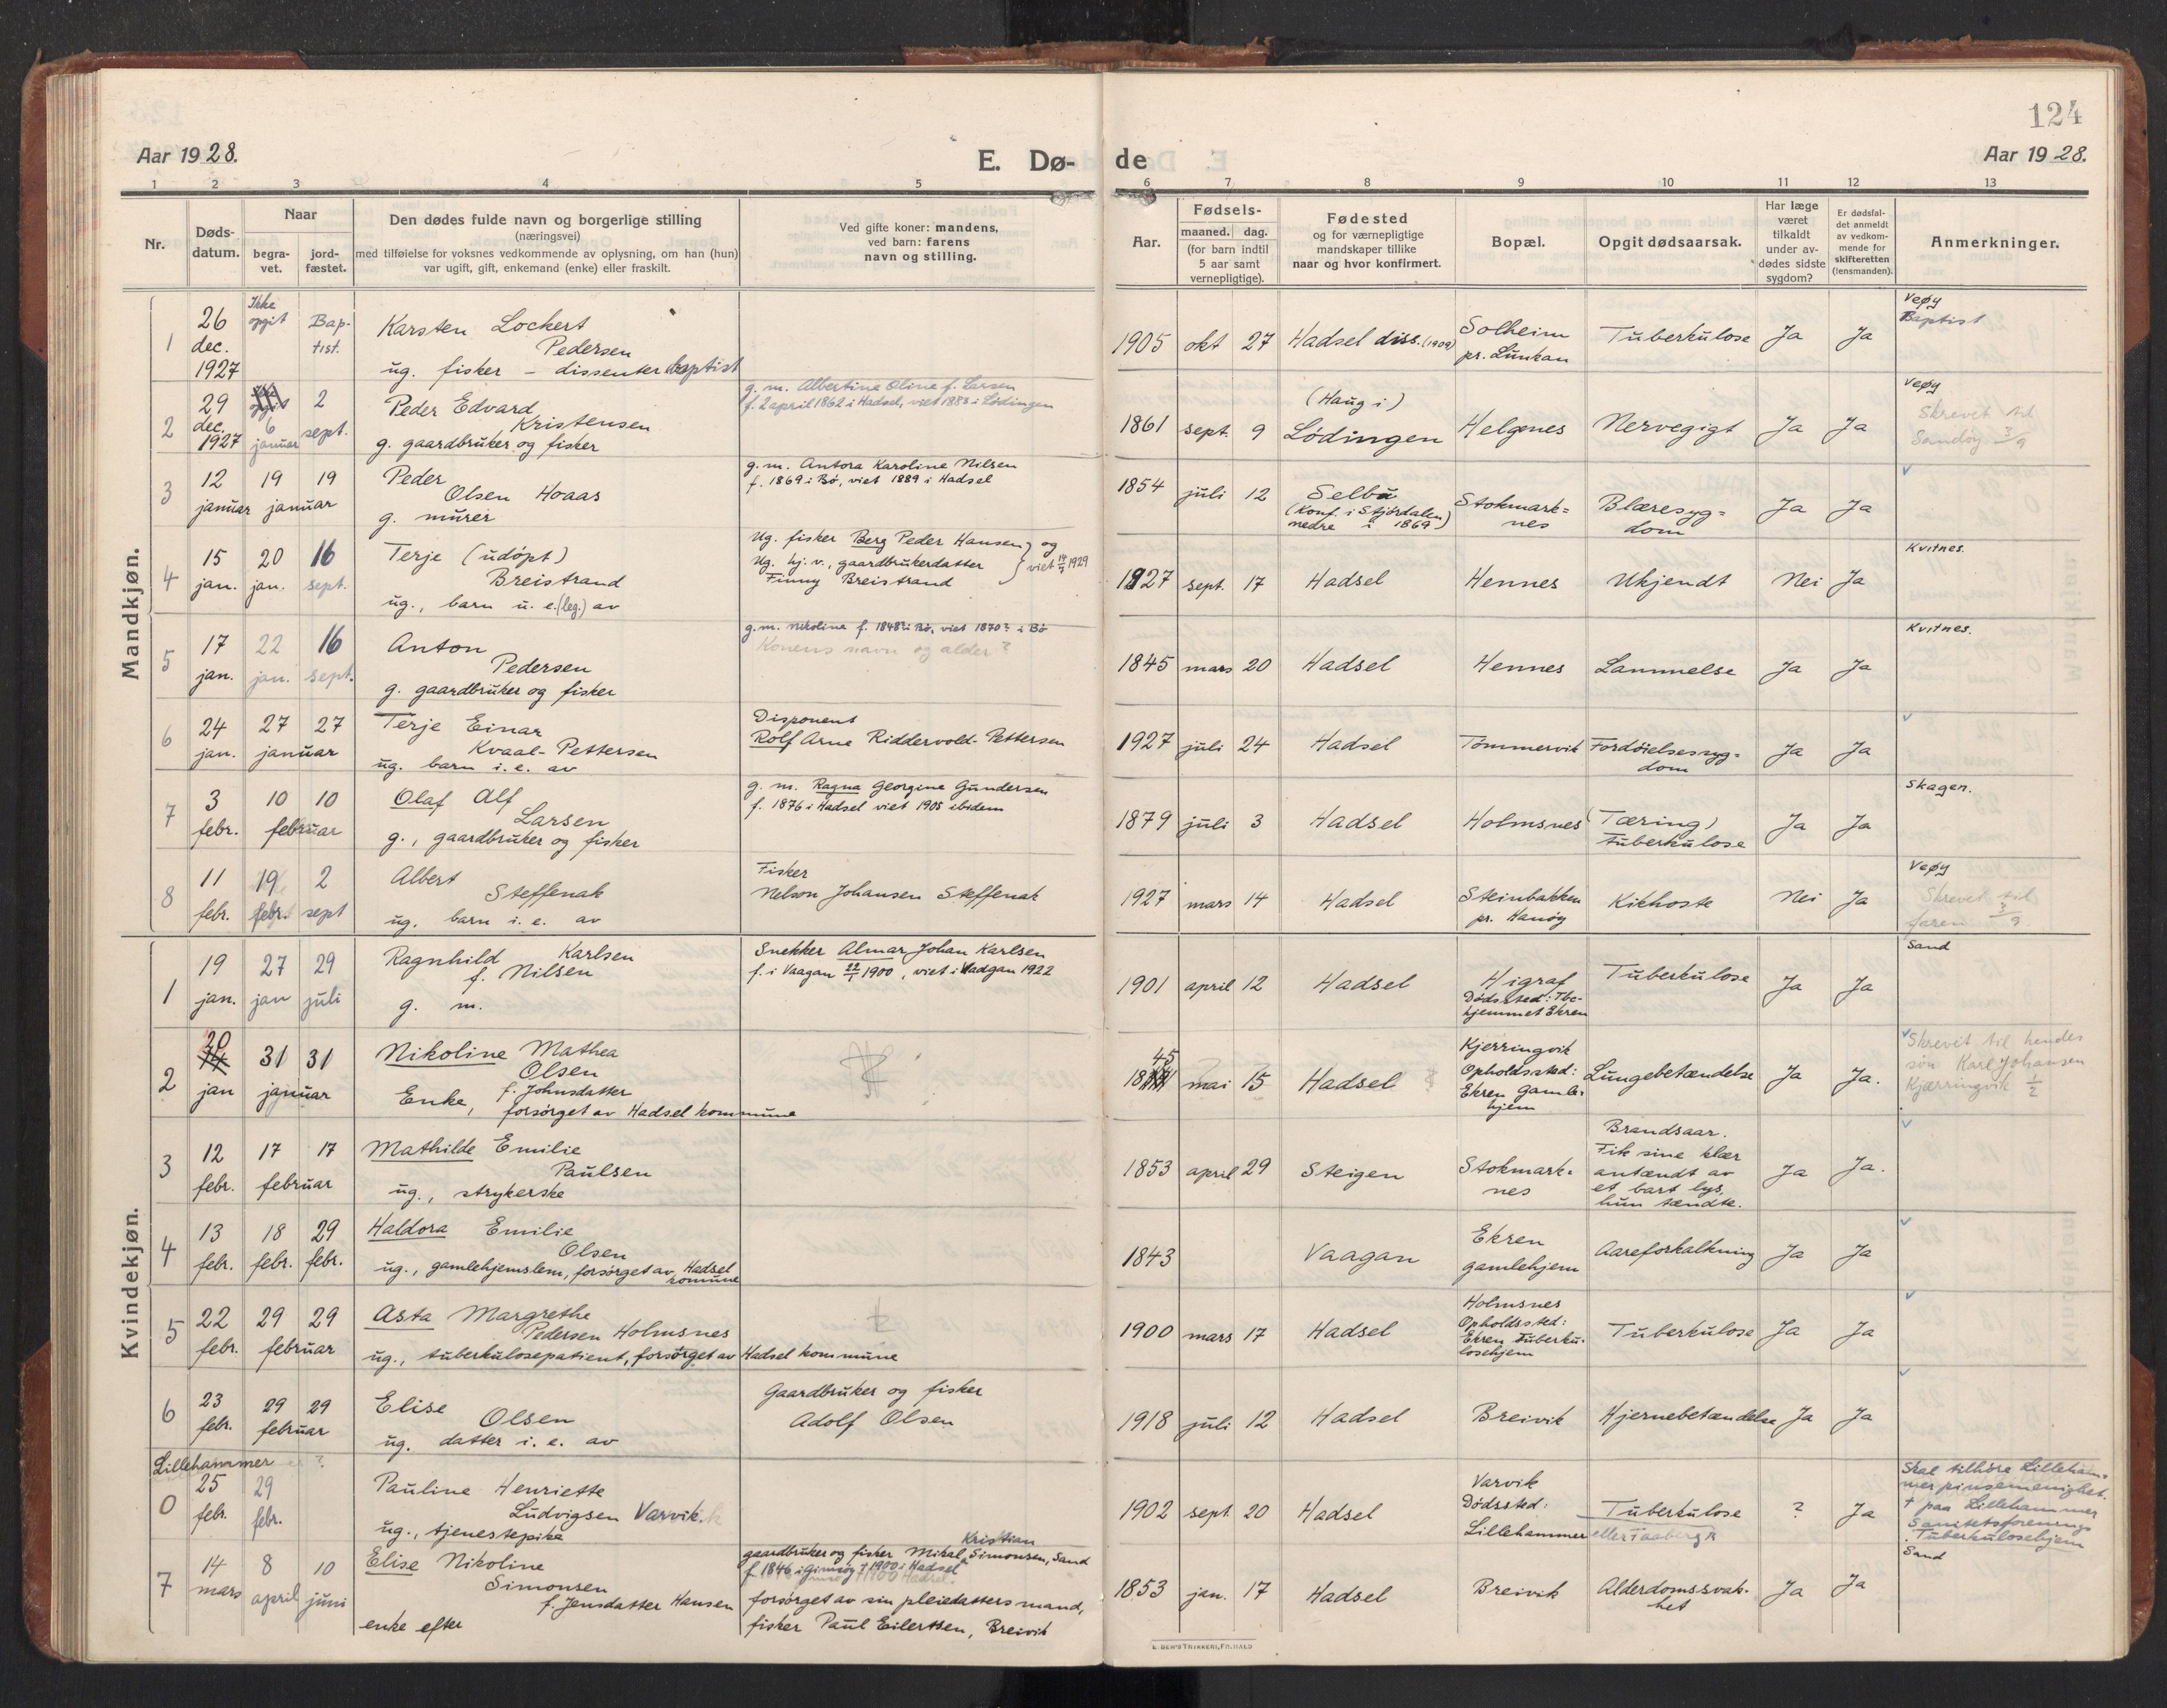 124
Aar 1928.
E. Dø-
de
Aar 1928.
1 2 3 4 5 6 7 8 9 10 11 12 13
Nr.
Døds-
datum.
Naar
begra-
vet.
jord-
fæstet.
Den dødes fulde navn og borgerlige stilling
(næringsvei)
med tilføielse for voksnes vedkommende av oplysning, om han (hun)
var ugift, gift, enkemand (enke) eller fraskilt.
Ved gifte koner: mandens,
ved barn: farens
navn og stilling.
Aar.
Fødsels-
maaned. dag.
(for barn indtil
5 aar samt
vernepligtige).
Fødested
og for værnepligtige
mandskaper tillike
naar og hvor konfirmert.
Bopæl.
Opgit dødsaarsak.
Har læge
været
tilkaldt
under av-
dødes sidste
sygdom?
Er dødsfal-
det anmeldt
av vedkom-
mende for
skifteretten
(lensmanden).
Anmerkninger.
Mandkjøn.
1
26
dec.
1927
Ikke
opgit
Bap-
tist.
Karsten Lockert
Pedersen
ug. fisker - dissenter baptist
1905 okt 27 Hadsel diss. (1909)
Solheim
pr. Lunkan
Tuberkulose Ja Ja
Veøy
Baptist
2
29
dec.
1927
6
januar
2
sept.
Peder Edvard
Kristensen
g. gaardbruker og fisker
g. m. Albertine Oline f. Larsen
f. 2 april 1862 i Hadsel, viet 1883 i Lødingen
1861 sept. 9
(Haug i)
Lødingen
Helgenes Nervegigt Ja Ja
Veøy
Skrevet til
Sandøy 3/9
3
12 19 19
januar januar
Peder
Olsen Hoaas
g. murer
g. m. Antora Karoline Nilsen
f. 1869 i Bø, viet 1889 i Hadsel
1854 juli 12
Selbu
(Konf. i Stjørdalen
nedre i 1869)
Stokmark=
nes
Blæresyg=
dom
Ja Ja
4
15 20 16
jan. jan. sept.
Terje (udøpt)
Breistrand
ug., barn u. e. (leg.) av
Ug. fisker Berg Peder Hansen og
Ug. hj. v., gaardbrukerdatter viet 14/7 1929
Finny Breistrand
1927 sept. 17 Hadsel Hennes Ukjendt Nei Ja
Kvitnes.
5
17 22 16
jan. jan. sept.
Anton
Pedersen
g. gaardbruker og fisker
g. m. Nikoline f. 1848? i Bø, viet 1870? i Bø
Konens navn og alder?
1845 mars 20 Hadsel Hennes Lammelse Ja Ja
Kvitnes.
6
24 27 27
jan. januar
Terje Einar
Kvaal-Pettersen
ug. barn i. e. av
Disponent
Rolf Arne Riddervold-Pettersen
1927 juli 24 Hadsel Tømmervik
Fordøielsessyg=
dom
Ja Ja
7
3 10 10
febr. februar
Olaf Alf
Larsen
g., gaardbruker og fisker
g. m. Ragna Georgine Gundersen
f. 1876 i Hadsel viet 1905 ibidem
1879 juli 3 Hadsel Holmsnes
(Tæring)
Tuberkulose
Ja Ja
Skagen.
8
11 19 2
febr. febr. sept
Albert
Steffenak
ug. barn i. e. av
Fisker
Nelson Johansen Steffenak
1927 mars 14 Hadsel
Steinbakken
pr. Hanøy
Kikhoste Nei Ja
Veøy
Skrevet til
faren 3/9
Kvindekjøn.
1
19 27 29
jan. jan juli
Ragnhild Karlsen
f. Nilsen
g. m.
Snekker Almar Johan Karlsen
f. i Vaagan 22/1 1900, viet i Vadgan 1922
1901 april 12 Hadsel
Higraf
Dødssted: Tbc-
hjemmet Ekren
Tuberkulose Ja Ja
Sand
2
30 31 31
jan januar
Nikoline Mathea
Olsen
f. Johnsdatter
Enke, forsørget av Hadsel kommune
1845 mai 15 Hadsel
Kjerringvik
Opholdssted:
Ekren Gamle-
hjem
Lungebetændelse Ja Ja.
Skrevet til hendes
søn Karl Johansen
Kjærringvik 1/2
3
12 17 17
febr. februar
Mathilde Emilie
Paulsen
ug., strykerske
1853 april 29 Steigen
Stokmark=
nes
Brandsaar.
Fik sine klær
antændt av
et bart lys,
hun tændte.
Ja Ja.
4
13 18 29
febr. febr. febr.
Haldora Emilie
Olsen
ug., gamlehjemslem, forsørget av Hadsel
komune
1843 Vaagan
Ekren
gamlehjem
Aareforkalkning Ja Ja
5
22 29 29
febr. februar
Asta Margrethe
Pedersen Holmsnes
ug., tuberkulosepatient, forsørget av Hadsel kommune
1900 mars 17 Hadsel
Holmsnes
Opholdssted:
Ekren Tuberku-
losehjem
Tuberkulose Ja Ja
6
23 29 29
febr. februar
Elise
Olsen
ug. datter i. e. av
Gaardbruker og fisker
Adolf Olsen
1918 juli 12 Hadsel Breivik Hjernebetændelse Ja Ja
Lillehammer ?
0
25 29
febr. febr.
Pauline Henriette
Ludvigsen Varvik.
ug., tjenestepike
1902 sept. 20 Hadsel
Varvik
Dødssted:
Lillehammer eller Faaberg?
Tuberkulose ? Ja
Skal tilhøre Lilleham=
mer pinsemenighet.
† paa Lillehammer
Sanitetsforenings
Tuberkulosehjem
7
14 8 10
mars april juni
Elise Nikoline
Simonsen
f. Jensdatter Hansen
enke efter
Kristian
gaardbruker og fisker Mikal Simonsen, Sand
f. 1846 i Gimsøy † 1900 i Hadsel
forsørget av sin pleiedatters mand,
fisker Paul Eilertsen, Breivik
1853 jan. 17 Hadsel Breivik
Alderdomssvak-
het
Ja Ja
Sand